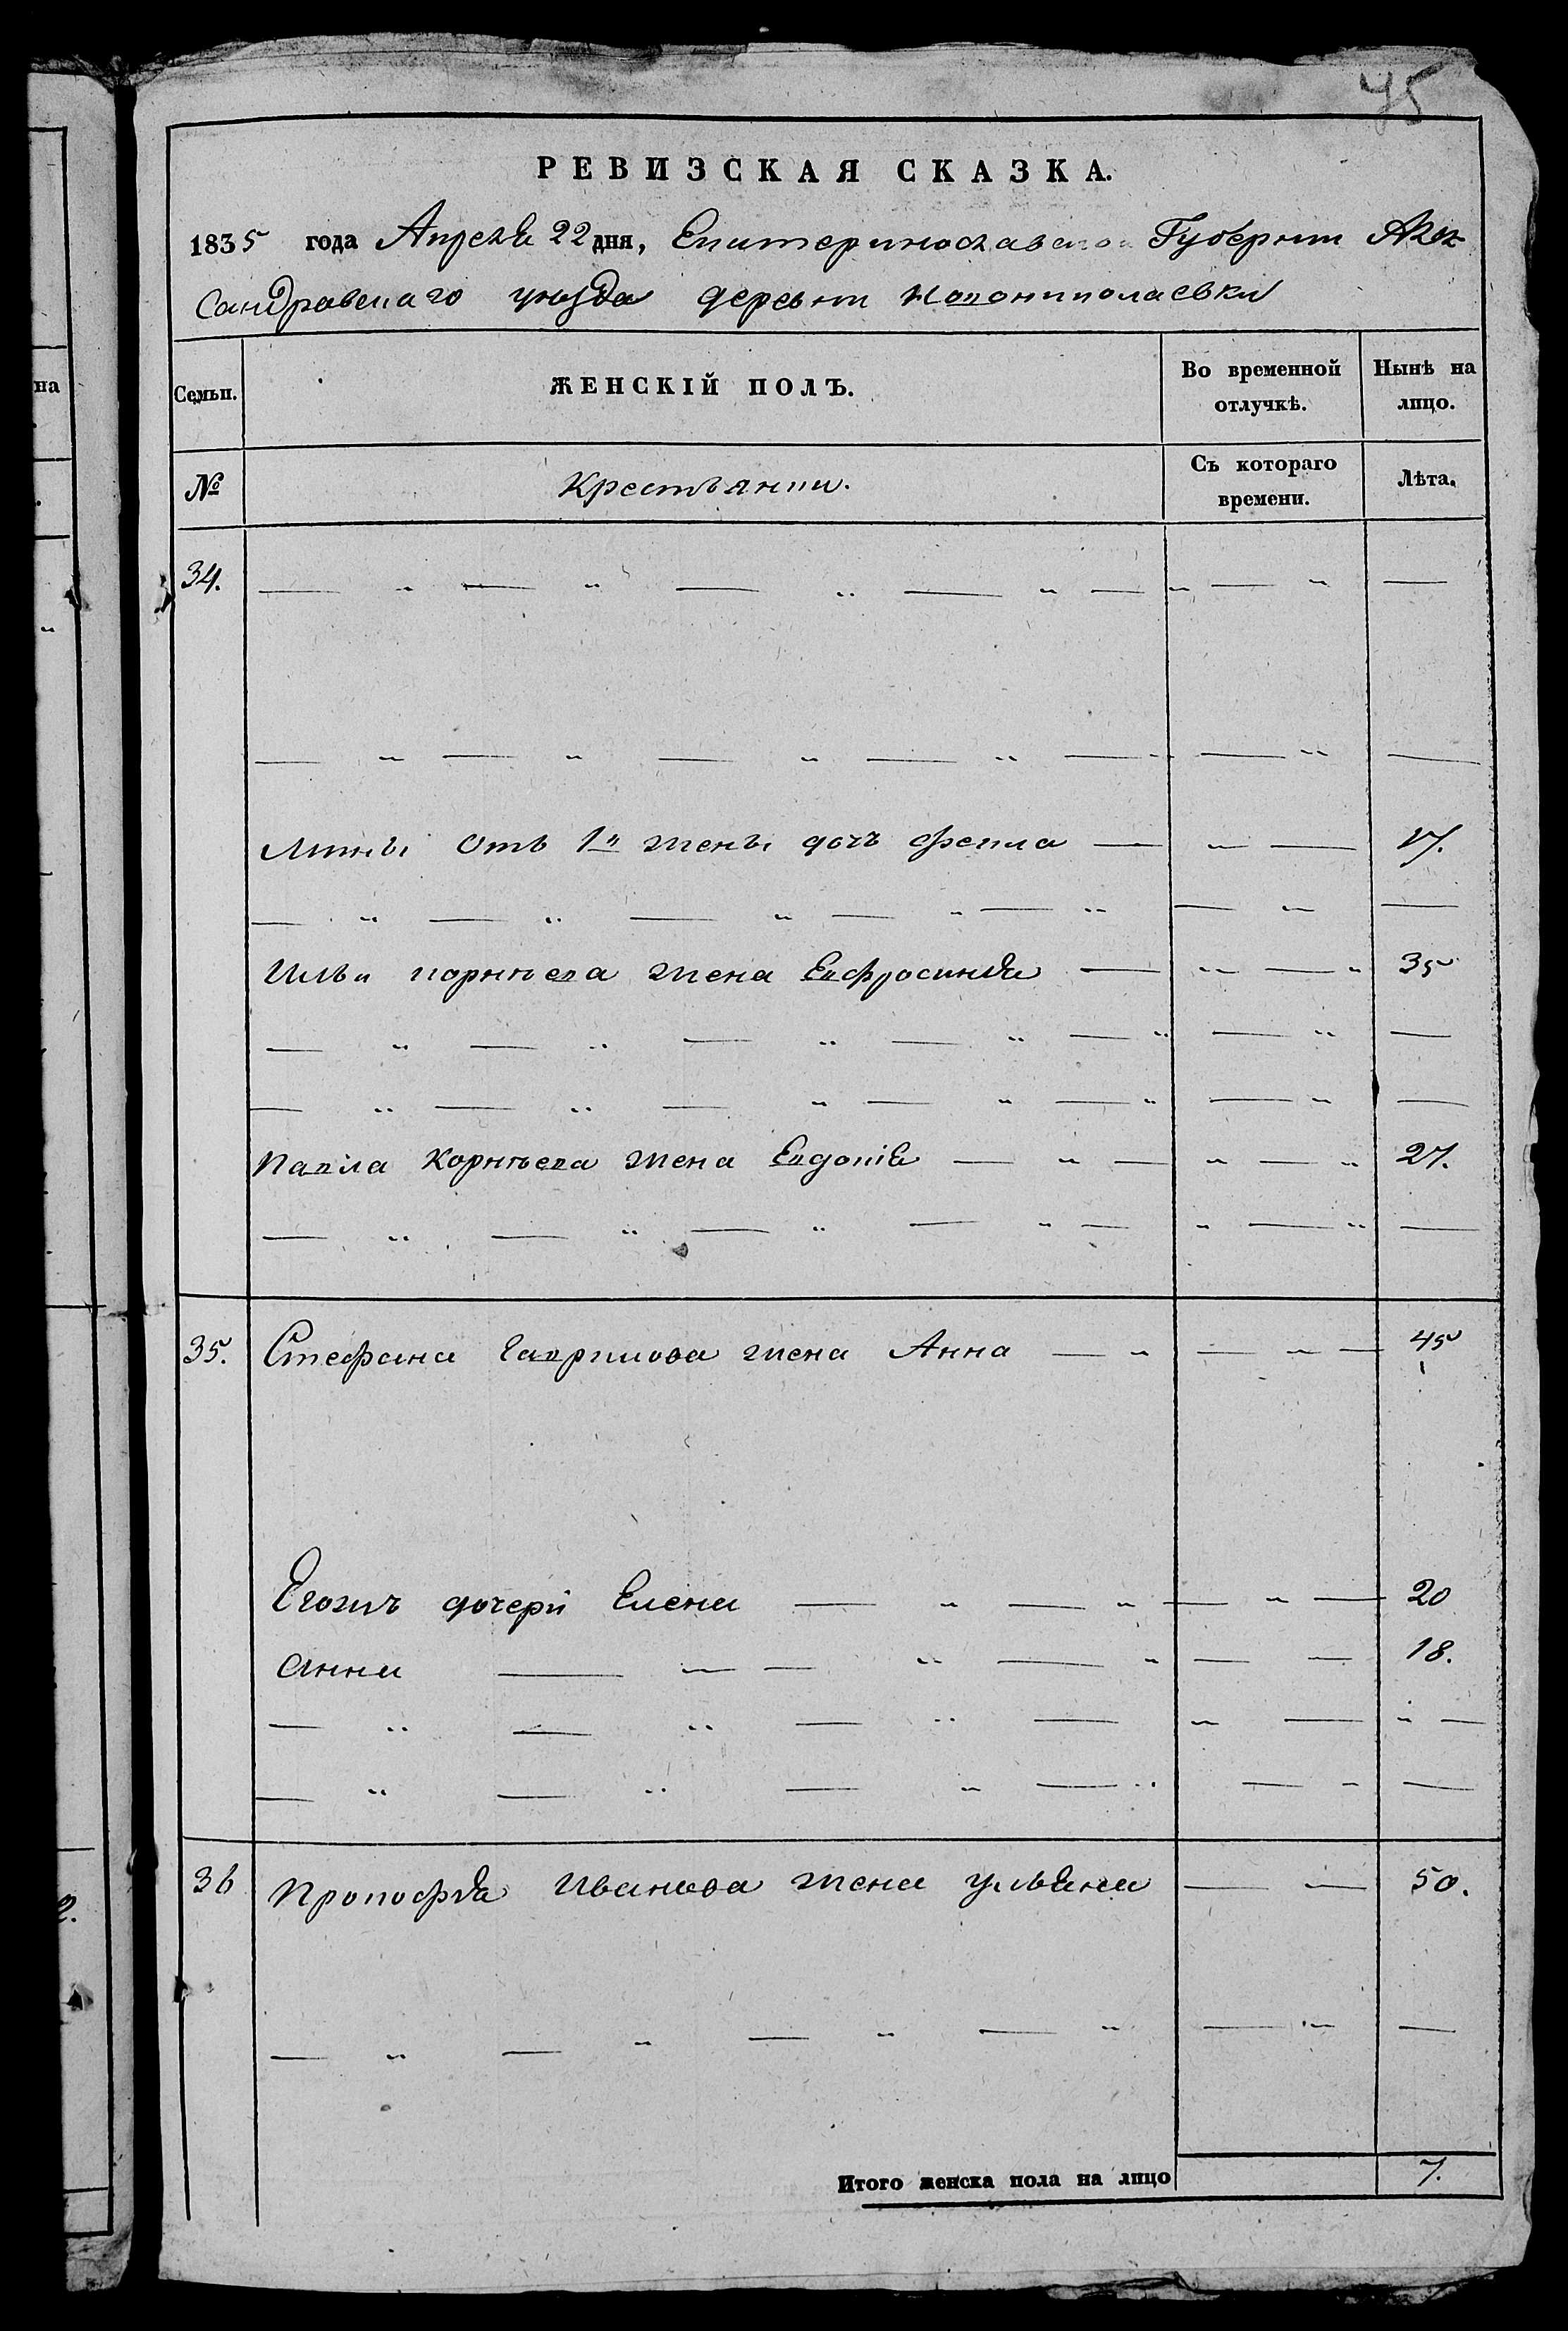 45
РЕВИЗСКАЯ СКАЗКА.
1835 года Апреля 22 дня, Екатеринославской Губернии Алек
сандровскаго уезда деревни Новониколаевки
Семьи. ЖЕНСКІЙ ПОЛЪ. Во временной отлучкѣ. Нынѣ на лицо.
№ Крестьянки. Съ котораго времени. Лѣта.
34. — " — " — " — " — " — " —
— " — " — " — " — " — " —
Мины отъ 1й жены дочь Фекла — " — 17.
— " — " — " — " — " — " —
Ильи Корнѣева жена Евфросинья — " — " 35
— " — " — " — " — " — " —
— " — " — " — " — " — " —
Павла Корнѣева жена Евдокія — " — " — " 27.
— " — " — " — " — " — " —
35. Стефана Гаврилова жена Анна — " — " — 45
Егожъ дочери Елена — " — " — " — 20
Анна — " — " — " — " — 18.
— " — " — " — " — " —
— " — " — " — " — " —
36 Прокофья Иванова жена Ульяна — " — 50.
— " — " — " — " — " — —
Итого женска пола на лицо 7.
на
2.